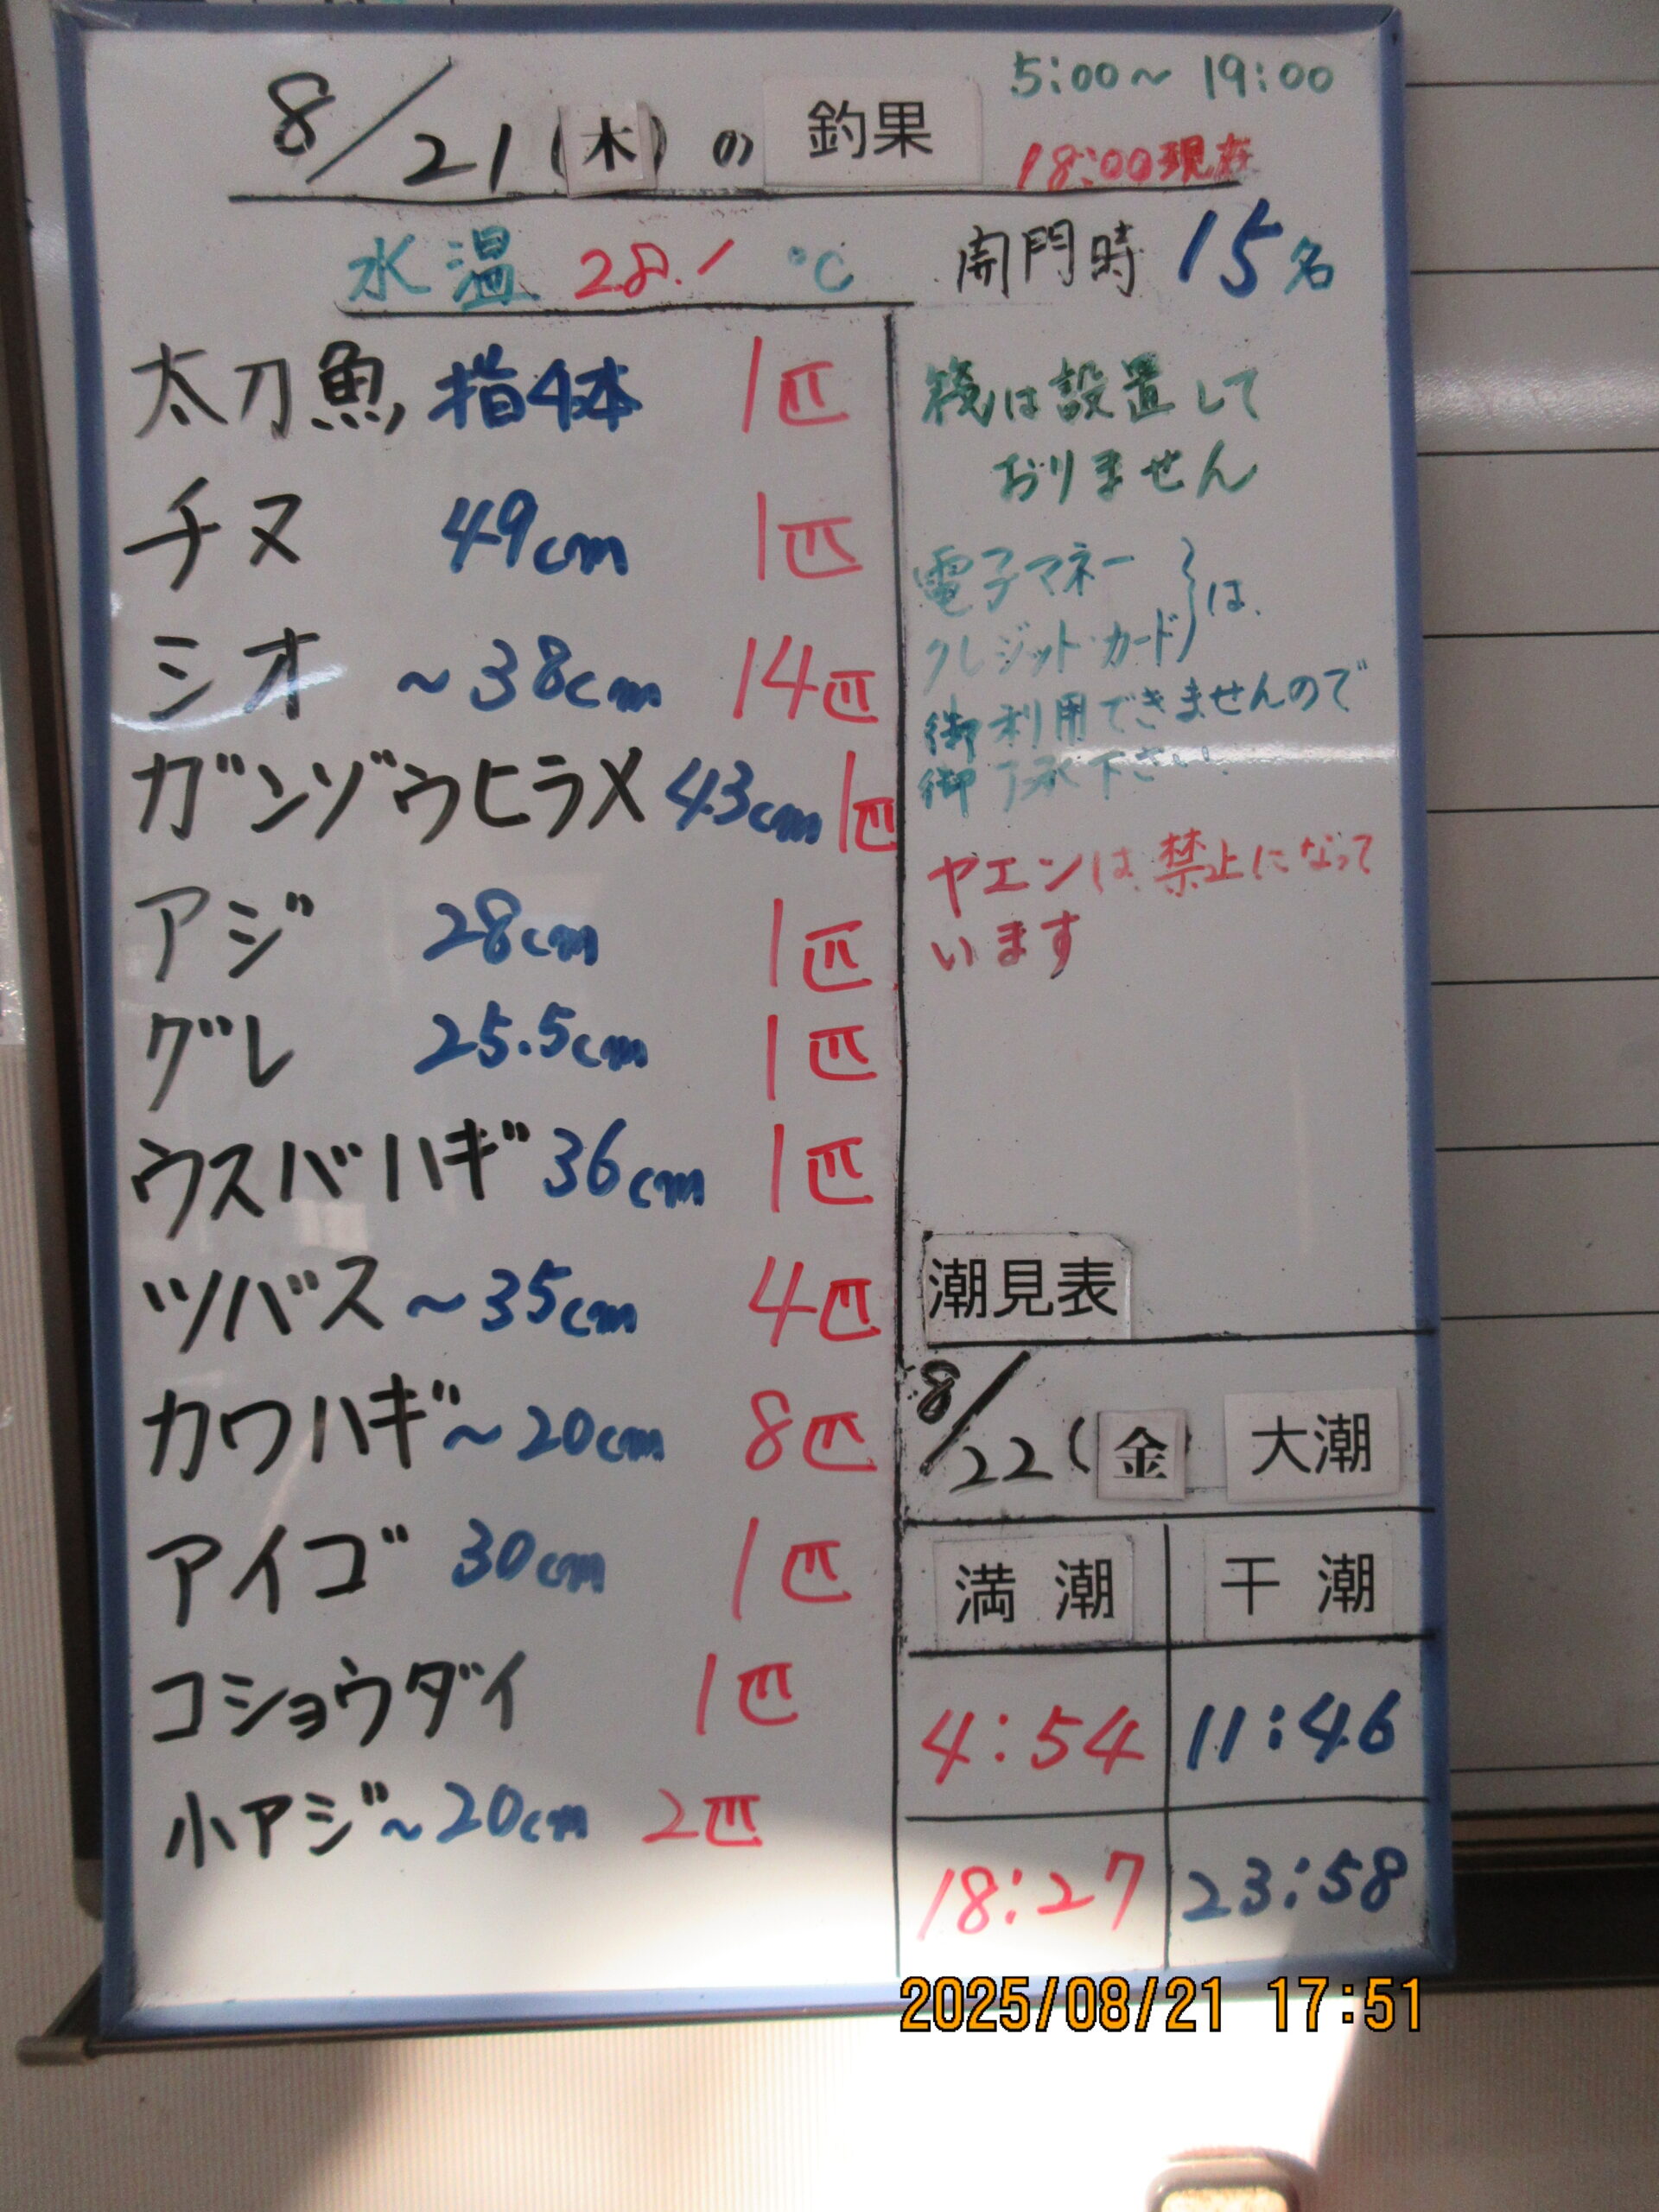 8/21(木)の釣果
5:00~19:00
18:00現在
水温 28.1 ℃
開門時 15名
太刀魚 指4本 1匹
チヌ 49cm 1匹
シオ ~38cm 14匹
ガンゾウヒラメ 43cm 1匹
アジ 28cm 1匹
グレ 25.5cm 1匹
ウスバハギ 36cm 1匹
ツバス ~35cm 4匹
カワハギ ~20cm 8匹
アイゴ 30cm 1匹
コショウダイ 1匹
小アジ ~20cm 2匹
筏は設置して
おりません
電子マネー
クレジット・カード}は
御利用できませんので
御了承下さい。
ヤエンは禁止になって
います
潮見表
8/22(金) 大潮
満潮 干潮
4:54 11:46
18:27 23:58
2025/08/21 17:51